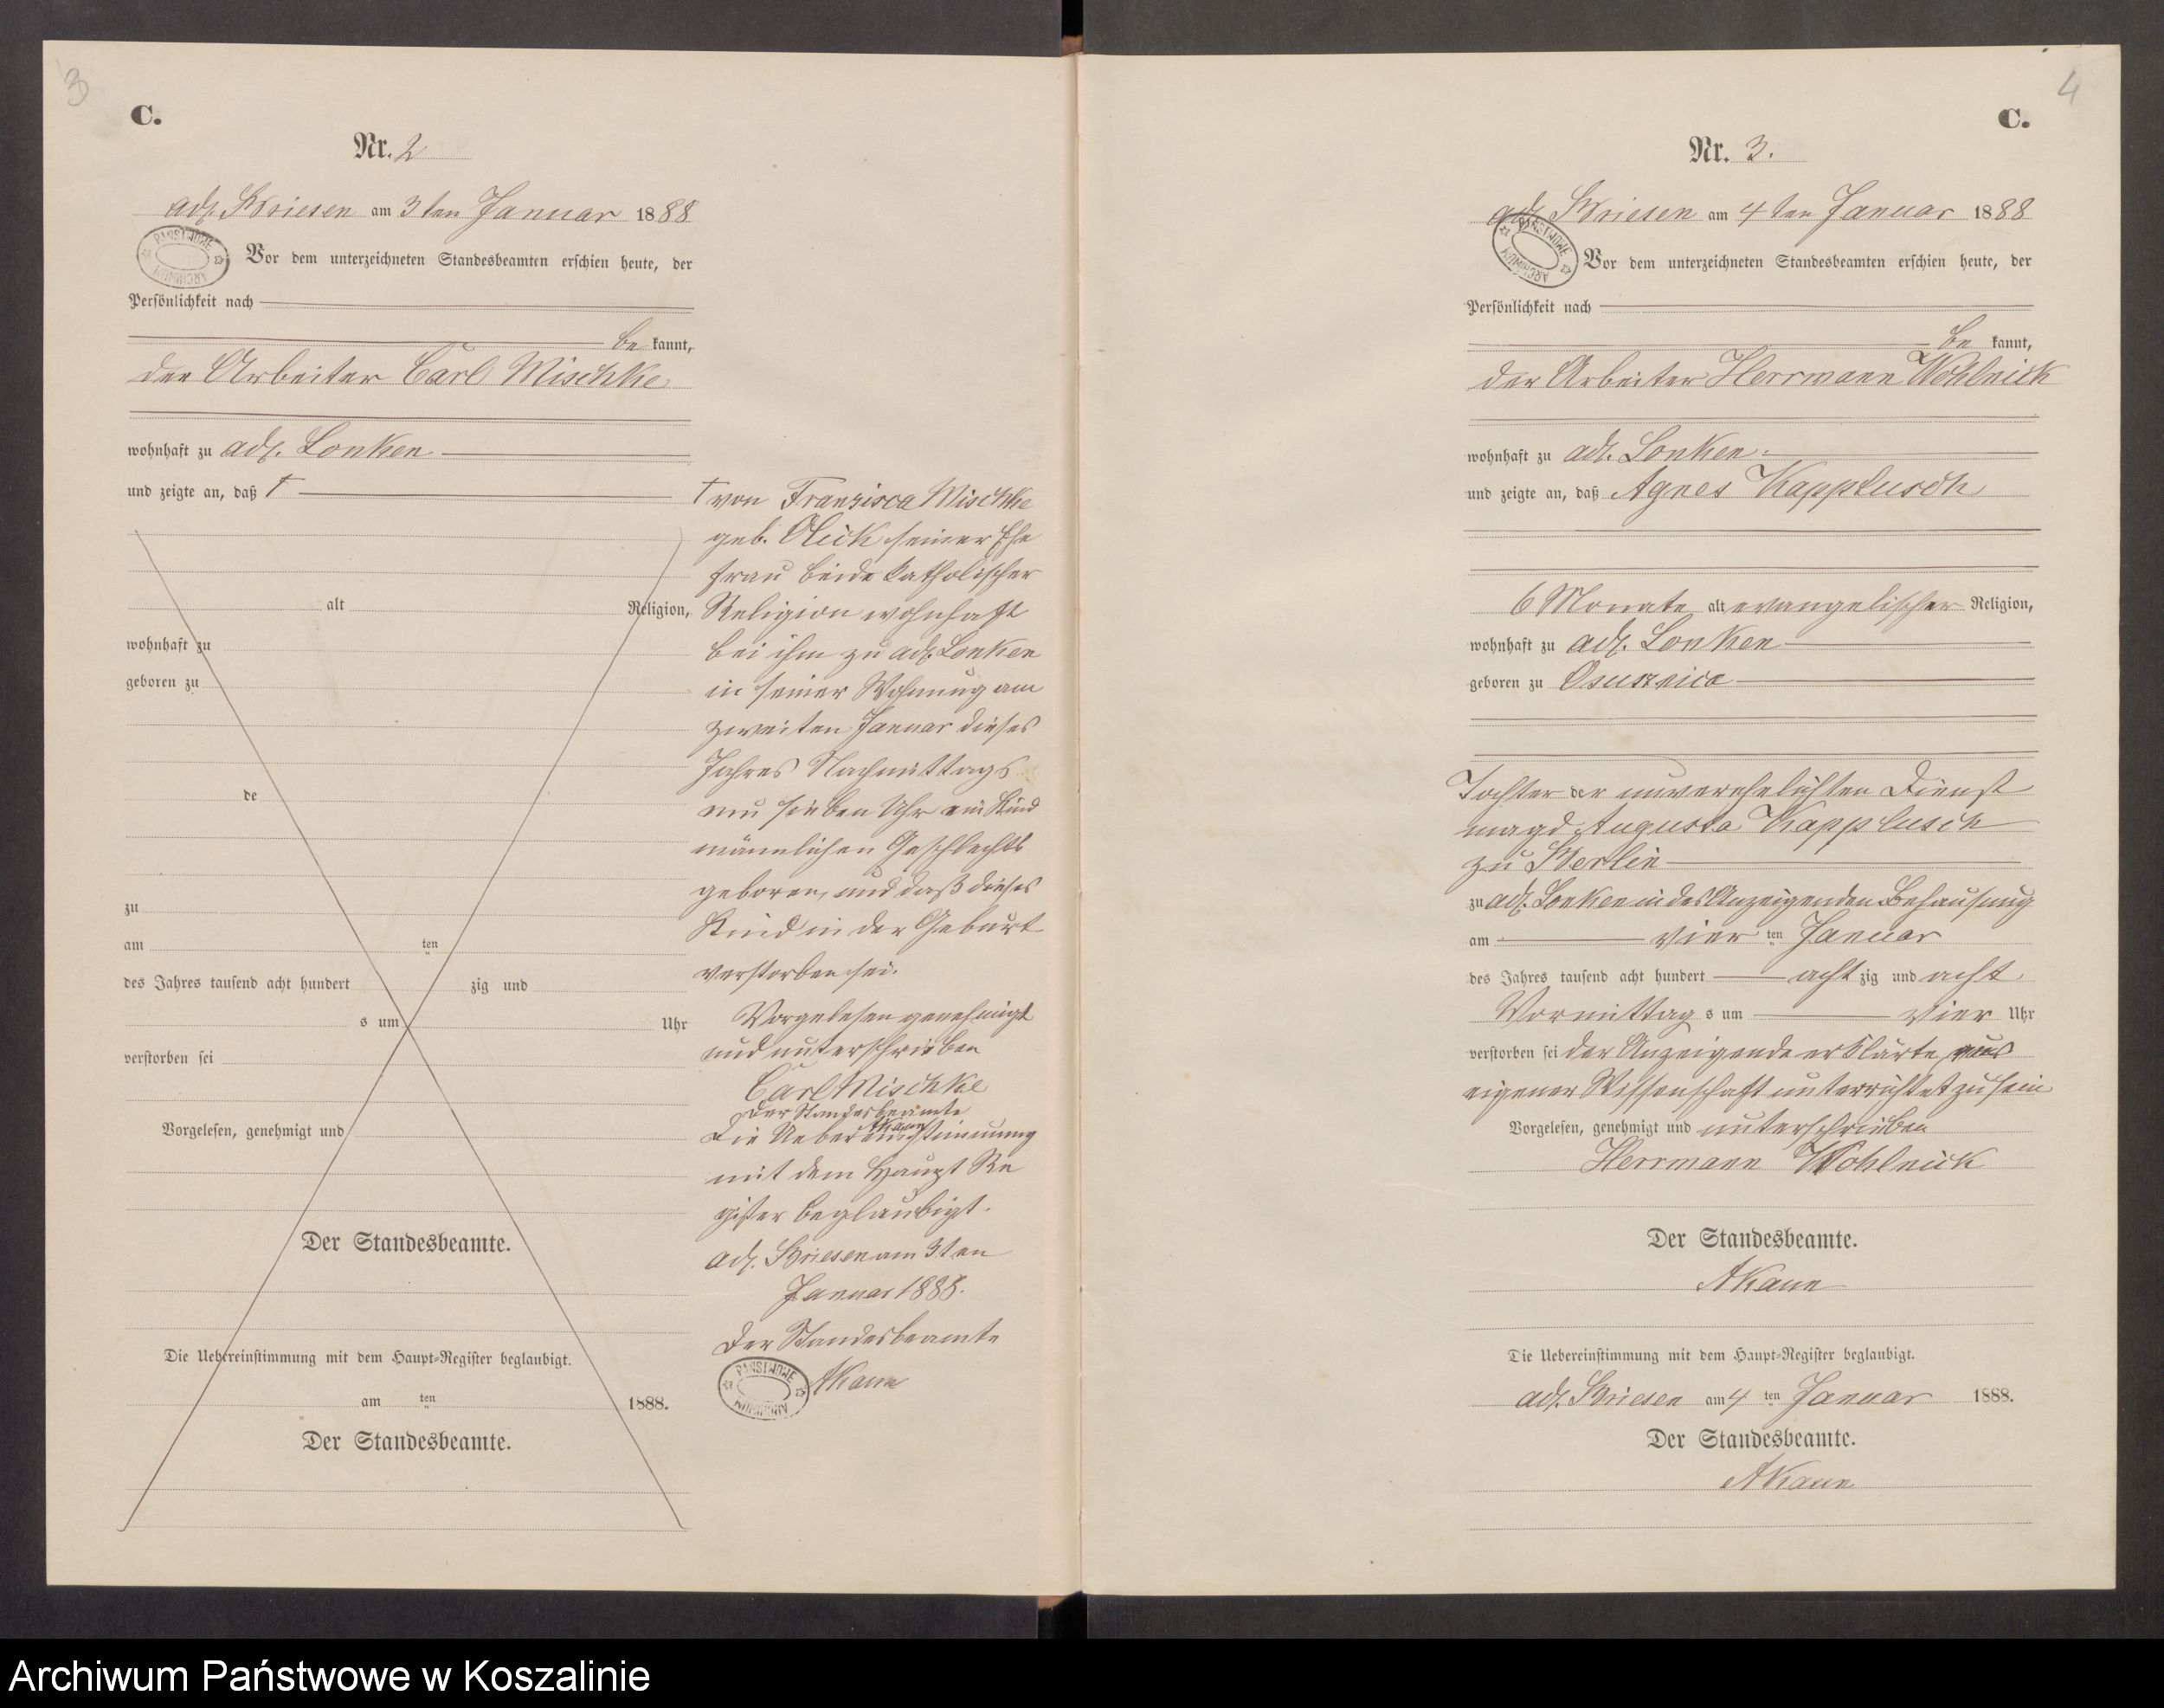 3
C.
Nr. 2
adl. Briesen am 3ten Januar 1888
PAŃSTWOWE ARCHIWUM
Vor dem unterzeichneten Standesbeamten erschien heute, der
Persönlichkeit nach
be kannt,
der Arbeiter Carl Mischke
wohnhaft zu adl. Lonken
und zeigte an, daß †
alt Religion,
wohnhaft zu
geboren zu
de
zu
am ten
des Jahres tausend acht hundert zig und
s um Uhr
verstorben sei
Vorgelesen, genehmigt und
Der Standesbeamte.
Die Uebereinstimmung mit dem Haupt-Register beglaubigt.
am ten 1888.
Der Standesbeamte.
† von Franzisca Mischke
geb. Olick seiner Ehe
frau beide katholischer
Religion wohnhaft
bei ihm zu adl. Lonken
in seiner Wohnung am
zweiten Januar dieses
Jahres Nachmittags
um sieben Uhr ein Kind
männlichen Geschlechts
geboren, und daß dieses
Kind in der Geburt
verstorben sei.
Vorgelesen genehmigt
und unterschrieben
Carl Mischke
Der Standesbeamte
AKaun
Die Uebereinstimmung
mit dem Haupt Re
gister beglaubigt.
adl. Briesen am 3ten
Januar 1888.
Der Standesbeamte
AKaun
PAŃSTWOWE ARCHIWUM
4
C.
Nr. 3.
adl. Briesen am 4ten Januar 1888
PAŃSTWOWE ARCHIWUM
Vor dem unterzeichneten Standesbeamten erschien heute, der
Persönlichkeit nach
be kannt,
der Arbeiter Herrmann Wohlnick
wohnhaft zu adl. Lonken
und zeigte an, daß Agnes Kapplusch
6 Monate alt evangelischer Religion,
wohnhaft zu adl. Lonken
geboren zu Osusznica
Tochter der unverehelichten Dienst
magd Augusta Kapplusch
zu Berlin
zu adl. Lonken in des Anzeigenden Behausung
am vier ten Januar
des Jahres tausend acht hundert acht zig und acht
Vormittag s um vier Uhr
verstorben sei der Anzeigende erklärte aus
eigener Wissenschaft unterrichtet zu sein
Vorgelesen, genehmigt und unterschrieben
Herrmann Wohlnick
Der Standesbeamte.
AKaun
Die Uebereinstimmung mit dem Haupt-Register beglaubigt.
adl. Briesen am 4 ten Januar 1888.
Der Standesbeamte.
AKaun
Archiwum Państwowe w Koszalinie